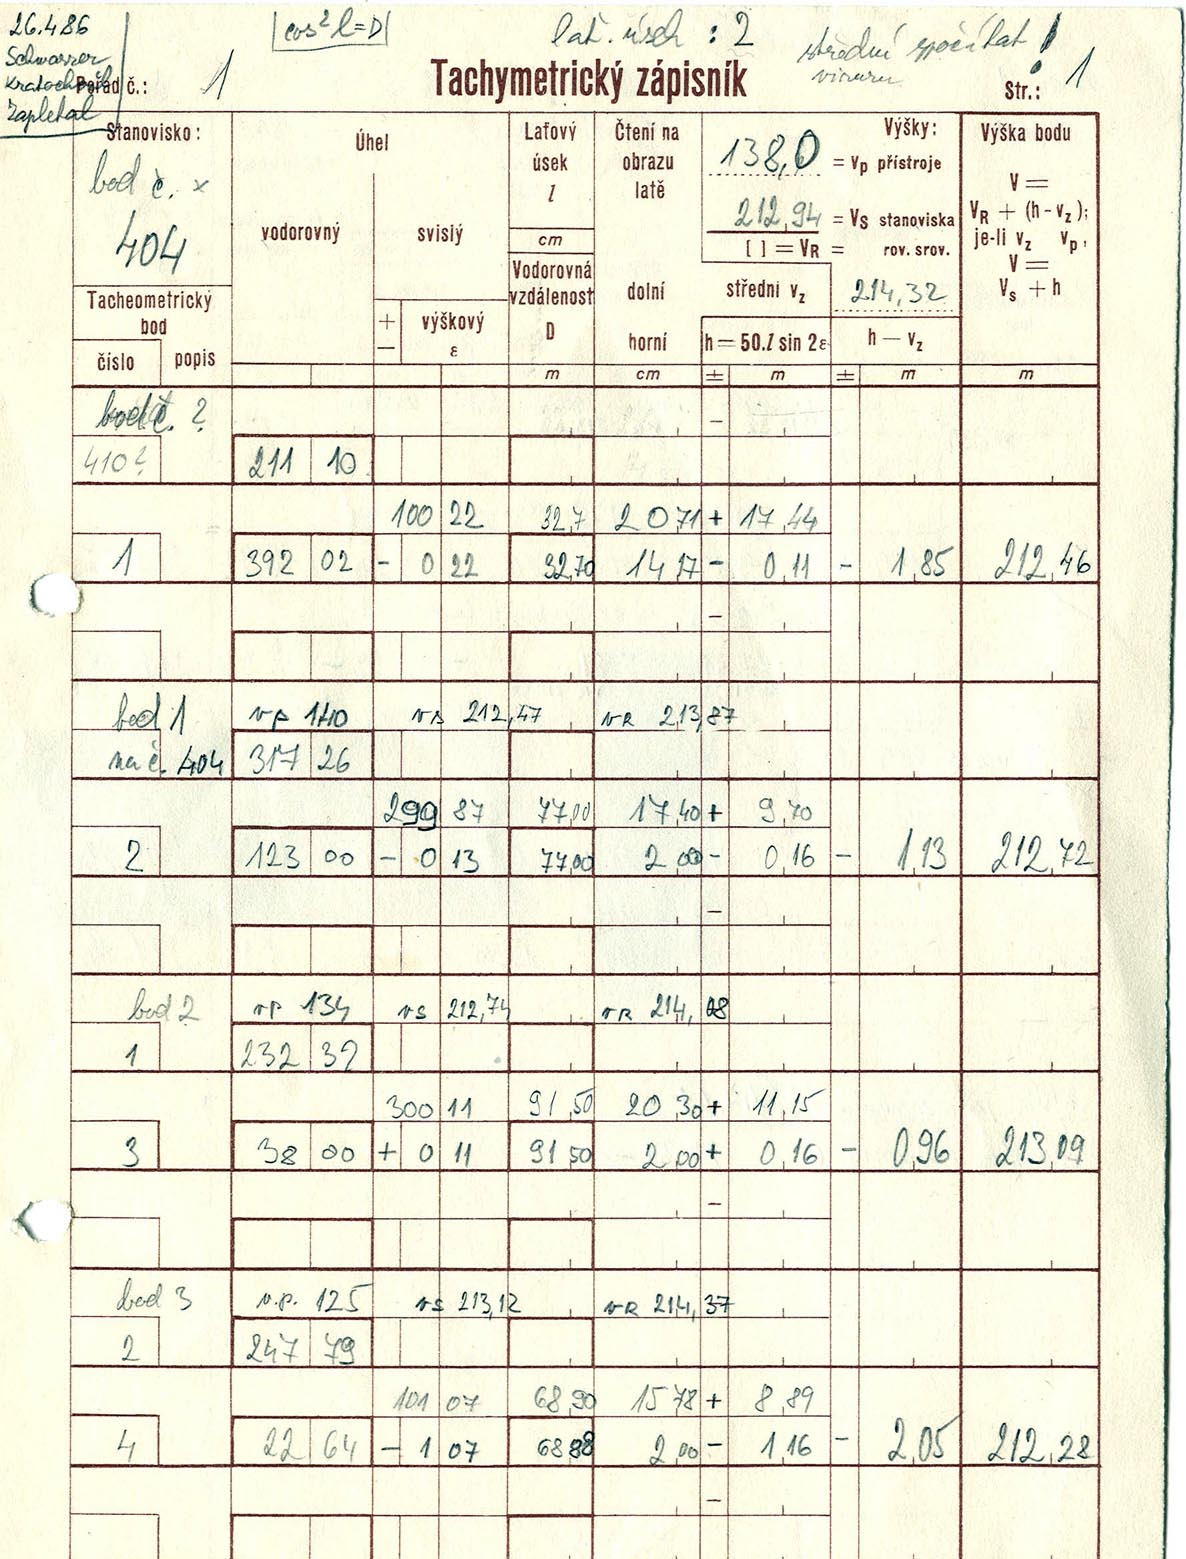 26.4.86
Schwarzer
Kratochvíl
Zapletal
cos² l = D
lať. úsek : 2
střední spočítat !
Pořad č.: 1
Tachymetrický zápisník
Str.: 1
Stanovisko:
bod č. x
404
Tacheometrický
bod
číslo popis
Úhel
vodorovný svislý
+
−
výškový
ε
Laťový
úsek
l
cm
Vodorovná
vzdálenost
D
m
Čtení na
obrazu
latě
dolní
horní
cm
Výšky:
138,0 = vp přístroje
212,94 = Vs stanoviska
[ ] = VR = rov. srov.
střední vz 214,32
h = 50.l sin 2ε h − vz
± m ± m
Výška bodu
V =
VR + (h − vz);
je-li vz vp,
V =
Vs + h
m
bod č. ?
−
410? 211 10
100 22 32,7 20 71 + 17,44
1 392 02 − 0 22 32,70 14 17 − 0,11 − 1,85 212,46
−
bod 1 vp 140 vs 212,47 vR 213,87
na č. 404 317 26
299 87 77,00 17,40 + 9,70
2 123 00 − 0 13 77,00 2,00 − 0,16 − 1,13 212,72
−
bod 2 vp 134 vs 212,74 vR 214,08
1 232 32
300 11 91,50 20 30 + 11,15
3 38 00 + 0 11 91,50 2,00 + 0,16 − 0,96 213,09
−
bod 3 v.p. 125 vs 213,12 vR 214,37
2 247 79
101 07 68,90 15 78 + 8,89
4 22 64 − 1 07 68,88 2,00 − 1,16 − 2,05 212,28
−